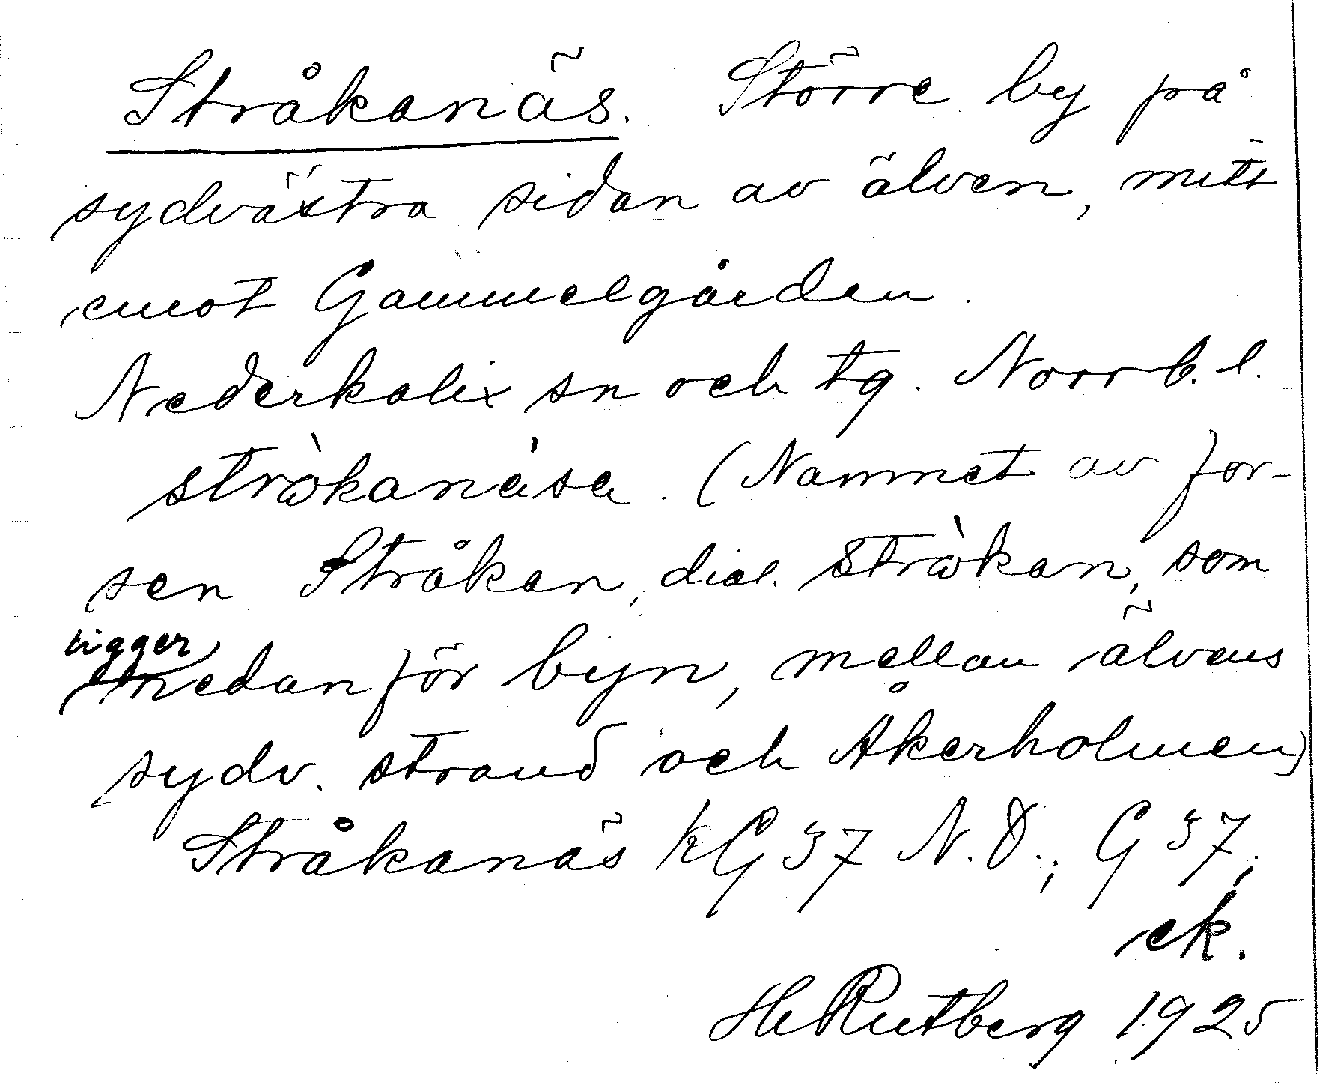 Stråkanäs. Större by på
sydvästra sidan av älven, mitt
emot Gammelgården.
Nederkalix sn och tg. Norrb. l.
stràkanàsa. (Namnet av for-
sen Stråkan, dial. stràkan, som
ligger
nedanför byn, mellan älvens
sydv. strand och Åkerholmen)
Stråkanäs kG 37 N.O.; G 37;
ek.
He Rutberg 1925